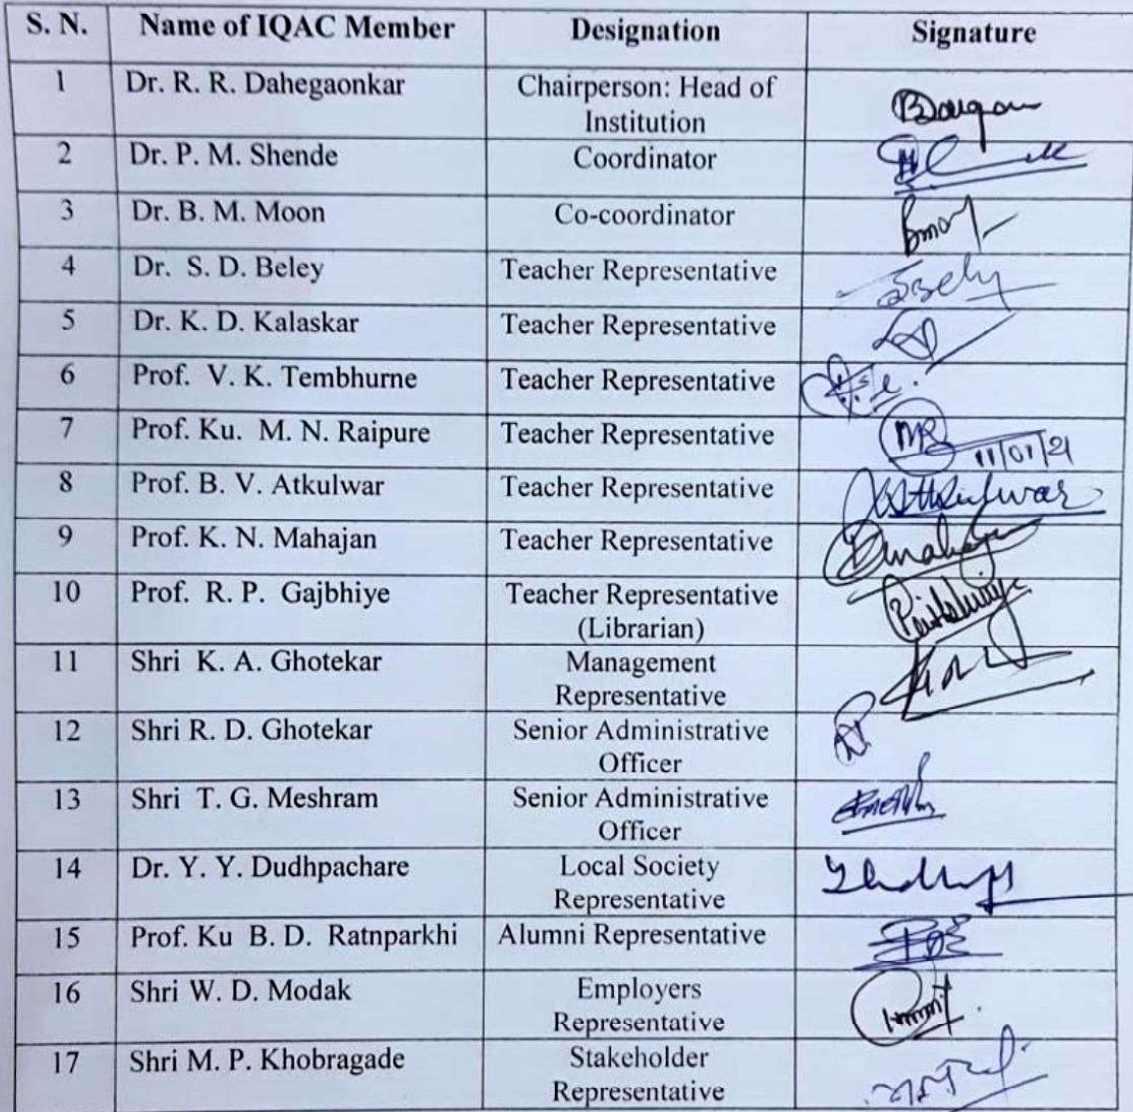 S. N. Name of IQAC Member Designation Signature
1 Dr. R. R. Dahegaonkar Chairperson: Head of
Institution
2 Dr. P. M. Shende Coordinator
3 Dr. B. M. Moon Co-coordinator
4 Dr. S. D. Beley Teacher Representative
5 Dr. K. D. Kalaskar Teacher Representative
6 Prof. V. K. Tembhurne Teacher Representative
7 Prof. Ku. M. N. Raipure Teacher Representative 11/01/21
8 Prof. B. V. Atkulwar Teacher Representative
9 Prof. K. N. Mahajan Teacher Representative
10 Prof. R. P. Gajbhiye Teacher Representative
(Librarian)
11 Shri K. A. Ghotekar Management
Representative
12 Shri R. D. Ghotekar Senior Administrative
Officer
13 Shri T. G. Meshram Senior Administrative
Officer
14 Dr. Y. Y. Dudhpachare Local Society
Representative
15 Prof. Ku B. D. Ratnparkhi Alumni Representative
16 Shri W. D. Modak Employers
Representative
17 Shri M. P. Khobragade Stakeholder
Representative